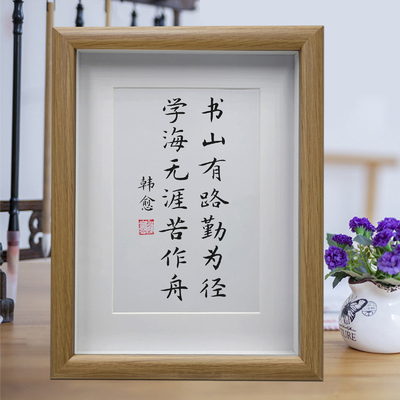 书山有路勤为径
学海无涯苦作舟
韩愈